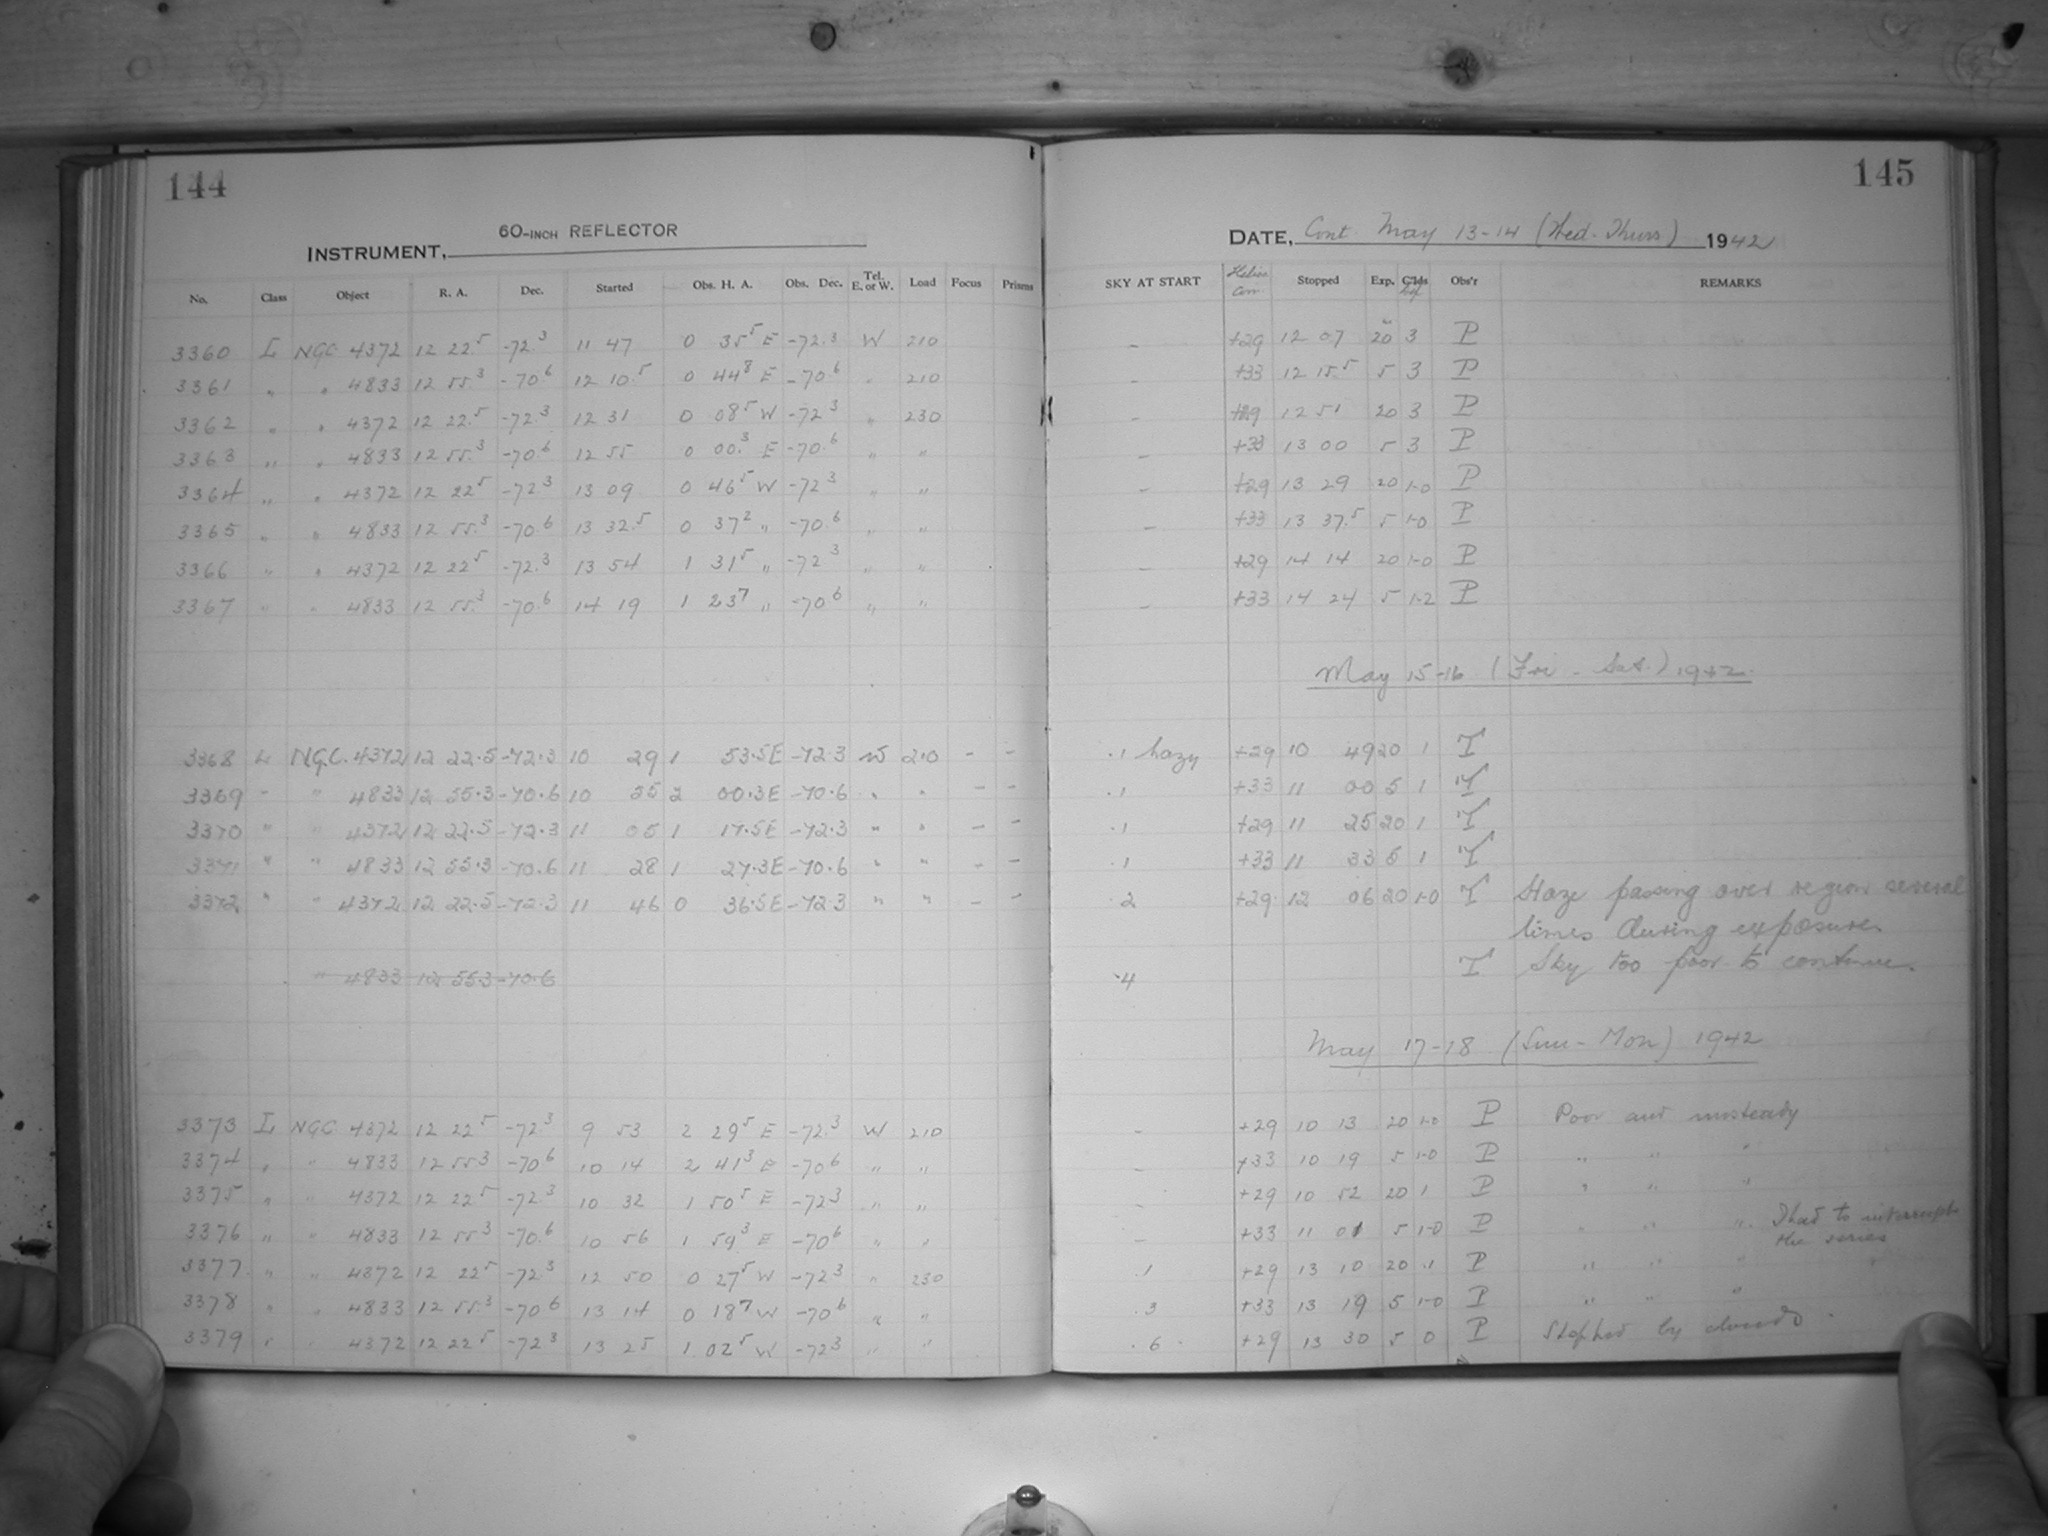 144
145
INSTRUMENT, 60-INCH REFLECTOR
DATE, Cont. May 13-14 (Wed-Thurs) 1942
No. Class Object R. A. Dec. Started Obs. H. A. Obs. Dec. Tel. E. or W. Load Focus Prisms SKY AT START Stopped Exp. Obs'r REMARKS
3360 L NGC 4372 12 22.5 -72.3 11 47 0 35.5 E -72.3 W 210 - +29 12 07 20 3 P
3361 " " 4833 12 55.3 -70.6 12 10.5 0 44.8 E -70.6 " 210 - +33 12 15.5 5 3 P
3362 " " 4372 12 22.5 -72.3 12 31 0 08.5 W -72.3 " 230 - +29 12 51 20 3 P
3363 " " 4833 12 55.3 -70.6 12 55 0 00.3 E -70.6 " " - +33 13 00 5 3 P
3364 " " 4372 12 22.5 -72.3 13 09 0 46.5 W -72.3 " " - +29 13 29 20 1-0 P
3365 " " 4833 12 55.3 -70.6 13 32.5 0 37.2 " -70.6 " " - +33 13 37.5 5 1-0 P
3366 " " 4372 12 22.5 -72.3 13 54 1 31.5 " -72.3 " " - +29 14 14 20 1-0 P
3367 " " 4833 12 55.3 -70.6 14 19 1 23.7 " -70.6 " " - +33 14 24 5 1-2 P
May 15-16 (Fri - Sat.) 1942
3368 L NGC. 4372 12 22.5 -72.3 10 29 1 53.5 E -72.3 W 210 - - .1 hazy +29 10 49 20 1 T
3369 " " 4833 12 55.3 -70.6 10 55 2 00.3 E -70.6 " " - - .1 +33 11 00 5 1 T
3370 " " 4372 12 22.5 -72.3 11 05 1 17.5 E -72.3 " " - - .1 +29 11 25 20 1 T
3371 " " 4833 12 55.3 -70.6 11 28 1 27.3 E -70.6 " " - - .1 +33 11 33 5 1 T
3372 " " 4372 12 22.5 -72.3 11 46 0 36.5 E -72.3 " " - - .2 +29 12 06 20 1-0 T Haze passing over region several
times during exposure.
" 4833 12 55.3 -70.6 .4 T Sky too poor to continue.
May 17-18 (Sun-Mon) 1942
3373 L NGC 4372 12 22.5 -72.3 9 53 2 29.5 E -72.3 W 210 - +29 10 13 20 1-0 P Poor and unsteady
3374 " " 4833 12 55.3 -70.6 10 14 2 41.3 E -70.6 " " - +33 10 19 5 1-0 P " " "
3375 " " 4372 12 22.5 -72.3 10 32 1 50.5 E -72.3 " " - +29 10 52 20 1 P " " "
3376 " " 4833 12 55.3 -70.6 10 56 1 59.3 E -70.6 " " - +33 11 01 5 1-0 P " " ". I had to interrupt
the series
3377 " " 4372 12 22.5 -72.3 12 50 0 27.5 W -72.3 " 230 .1 +29 13 10 20 1 P " " "
3378 " " 4833 12 55.3 -70.6 13 14 0 18.7 W -70.6 " " .3 +33 13 19 5 1-0 P " " "
3379 " " 4372 12 22.5 -72.3 13 25 1 02.5 W -72.3 " " .6 +29 13 30 5 0 P Stopped by clouds.